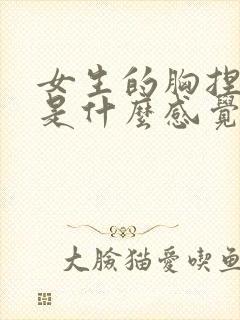 女生的胸捏
是什麼感覺
大臉猫愛喫鱼